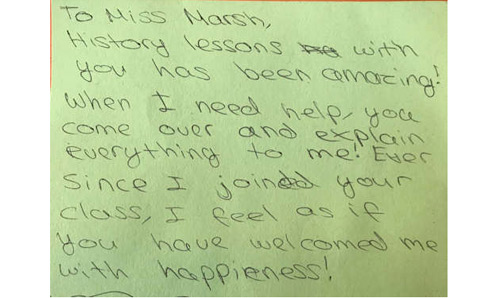 To Miss Marsh,
History lessons with
you has been amazing!
When I need help, you
come over and explain
everything to me! Ever
since I joined your
class, I feel as if
you have welcomed me
with happieness!